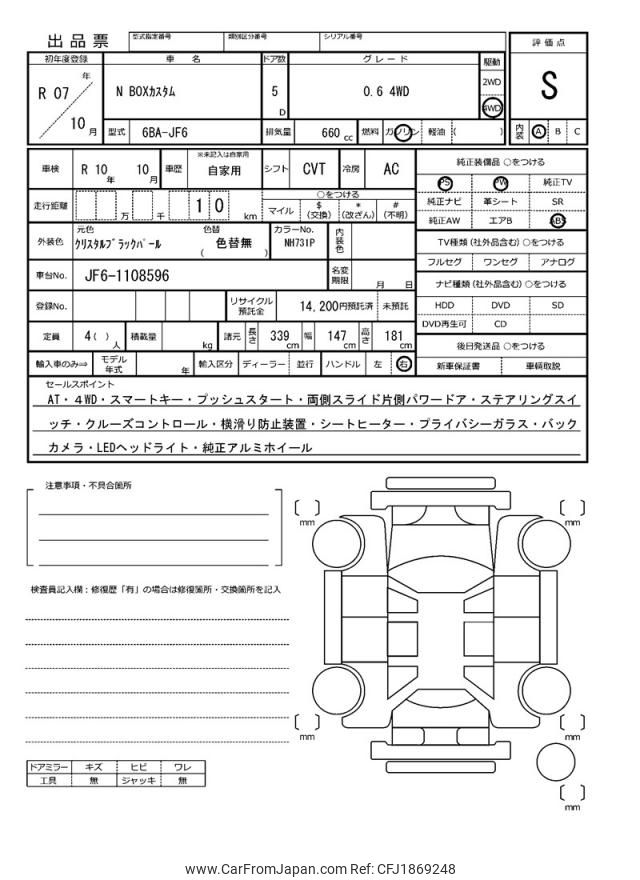 出品票 型式指定番号 類別区分番号 シリアル番号
評価点
S
初年度登録 車名 ドア数 グレード 駆動
R 07 年 10 月
N BOXカスタム 5 D 0.6 4WD
2WD
4WD
型式 6BA-JF6 排気量 660 cc 燃料 ガソリン 軽油 ( )
内装 A B C
車検 R 10 年 10 月 車歴 ※未記入は自家用 自家用 シフト CVT 冷房 AC
走行距離 万 千 1 0 km
○をつける
マイル $ (交換) * (改ざん) # (不明)
外装色 元色 クリスタルブラックパール 色替 ( 色替無 ) カラーNo. NH731P 内装色
車台No. JF6-1108596 名変期限 月 日
登録No. リサイクル預託金 14,200円預託済 未預託
定員 4( ) 人 積載量 kg 諸元 長さ 339 cm 幅 147 cm 高さ 181 cm
輸入車のみ⇒ モデル年式 年 輸入区分 ディーラー 並行 ハンドル 左 右
純正装備品 ○をつける
PS PW 純正TV
純正ナビ 革シート SR
純正AW エアB ABS
TV種類 (社外品含む) ○をつける
フルセグ ワンセグ アナログ
ナビ種類 (社外品含む) ○をつける
HDD DVD SD
DVD再生可 CD
後日発送品 ○をつける
新車保証書 車輌取説
セールスポイント
AT・4WD・スマートキー・プッシュスタート・両側スライド片側パワードア・ステアリングスイ
ッチ・クルーズコントロール・横滑り防止装置・シートヒーター・プライバシーガラス・バック
カメラ・LEDヘッドライト・純正アルミホイール
注意事項・不具合箇所
検査員記入欄：修復歴「有」の場合は修復箇所・交換箇所を記入
〔 〕 mm 〔 〕 mm
〔 〕 mm 〔 〕 mm
〔 〕 mm
ドアミラー キズ ヒビ ワレ
工具 無 ジャッキ 無
www.CarFromJapan.com Ref: CFJ1869248